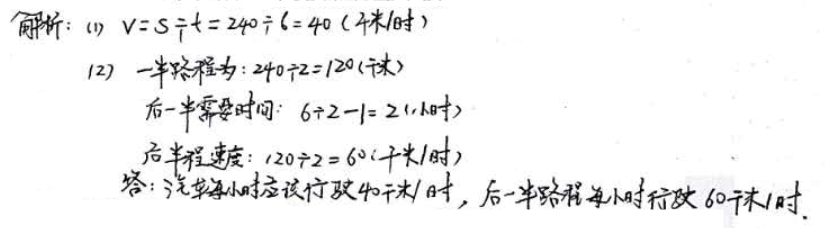 解析：(1) V=S÷t=240÷6=40（千米/时）
(2) 一半路程为：240÷2=120（千米）
后一半需要时间：6÷2-1=2（小时）
后半程速度：120÷2=60（千米/时）
答：汽车每小时应该行驶40千米/时，后一半路程每小时行驶60千米/时.